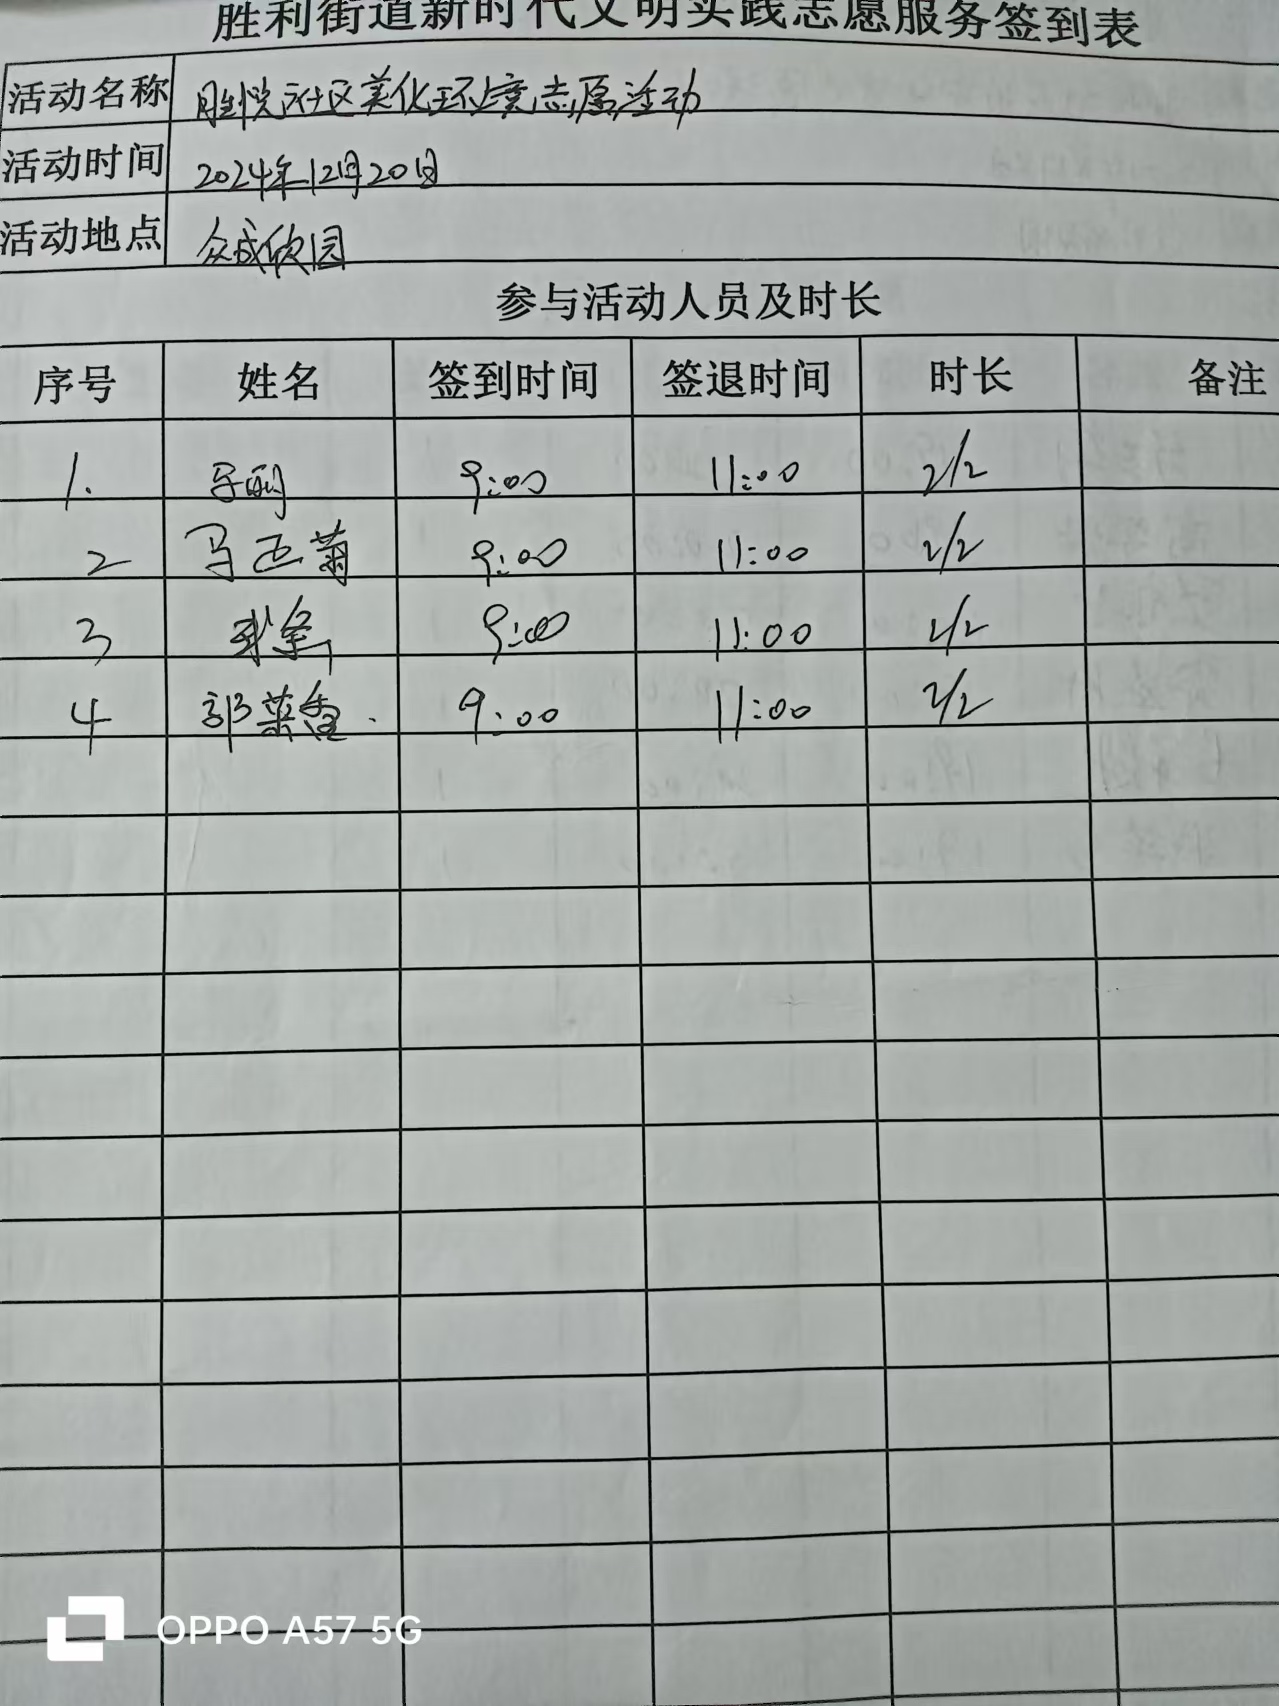 胜利街道新时代文明实践志愿服务签到表
活动名称 胜悦社区美化环境志愿活动
活动时间 2024年12月20日
活动地点 众成欣园
参与活动人员及时长
序号 姓名 签到时间 签退时间 时长 备注
1. 9:00 11:00 2/2
2 马玉菊 9:00 11:00 2/2
3 9:00 11:00 2/2
4 郭菜香 9:00 11:00 2/2
OPPO A57 5G